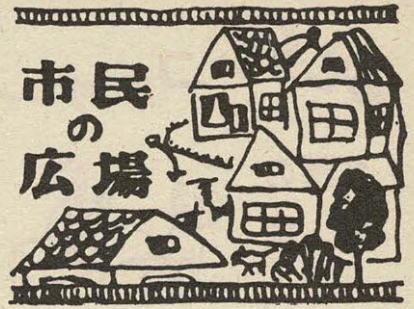 市民
の
広場